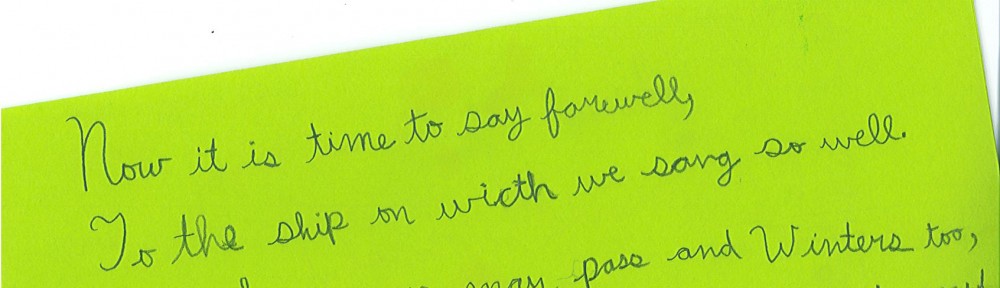 Now it is time to say farewell,
To the ship on wicth we sang so well.
may pass and Winters too,